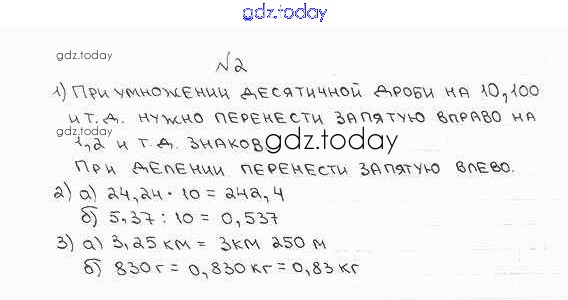 gdz.today
gdz.today
№2
1) ПРИ УМНОЖЕНИИ ДЕСЯТИЧНОЙ ДРОБИ НА 10,100
И Т.Д. НУЖНО ПЕРЕНЕСТИ ЗАПЯТУЮ ВПРАВО НА
1,2 И Т.Д. ЗНАКОВ
gdz.today
ПРИ ДЕЛЕНИИ ПЕРЕНЕСТИ ЗАПЯТУЮ ВЛЕВО.
2) а) 24,24 · 10 = 242,4
б) 5,37 : 10 = 0,537
3) а) 3,25 км = 3км 250 м
б) 830г = 0,830 кг = 0,83 кг
gdz.today
gdz.today